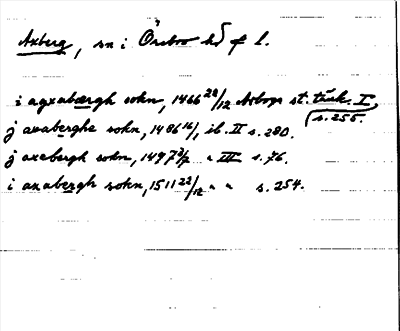 Axberg, sn i Örebro hd o f l.
i agxabærgh sokn, 1466 28/12 Arboga st. tänk. I, s. 255.
j axaberghe sokn, 1486 16/1, ib. II s. 280.
j axebergh sokn, 1497 2/7 " III s. 76.
i axabergh sokn, 1511 22/12 " " s. 254.